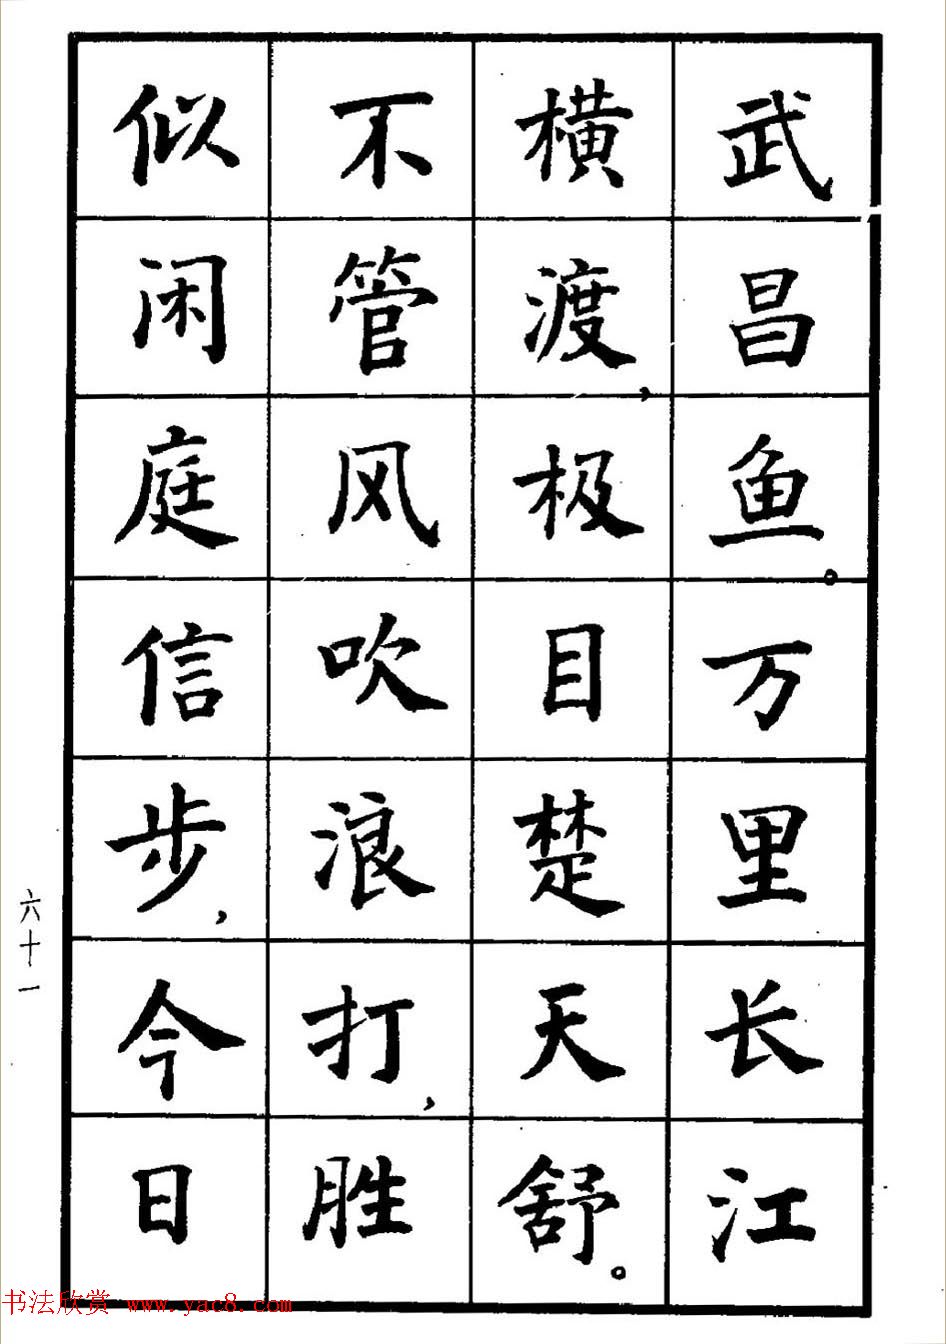 武昌鱼。万里长江
横渡，极目楚天舒。
不管风吹浪打，胜
似闲庭信步，今日
六十一
书法欣赏 www.yac8.com